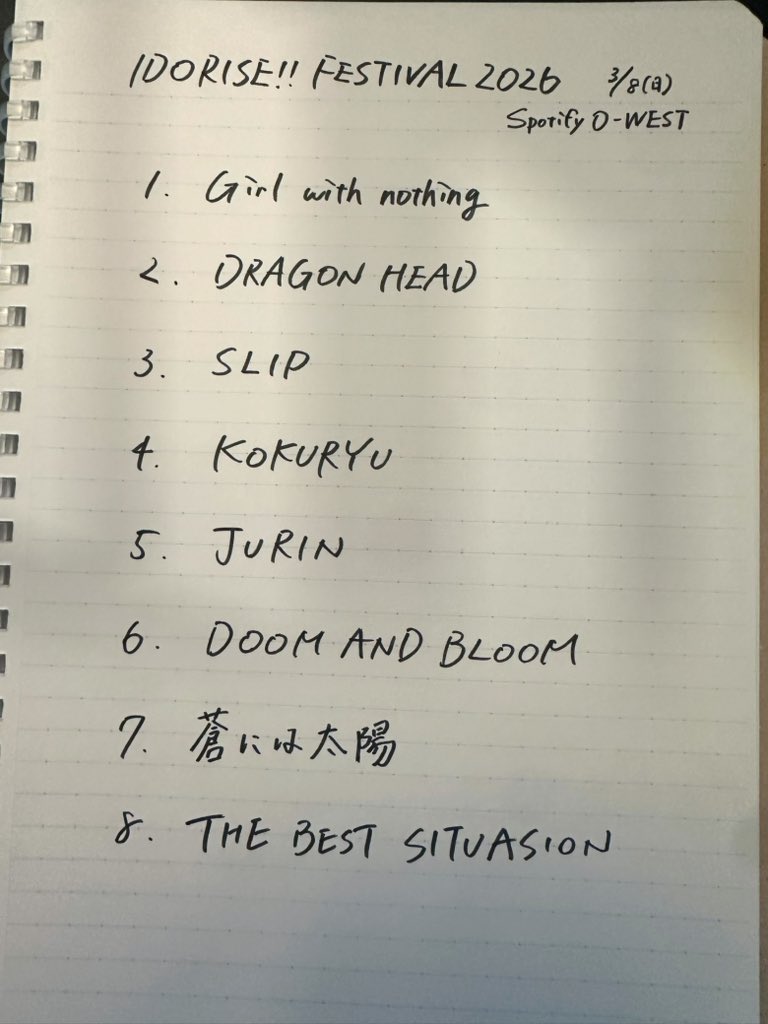 IDORISE!! FESTIVAL 2026 3/8(日)
Spotify O-WEST
1. Girl with nothing
2. DRAGON HEAD
3. SLIP
4. KOKURYU
5. JURIN
6. DOOM AND BLOOM
7. 蒼には太陽
8. THE BEST SITUASION